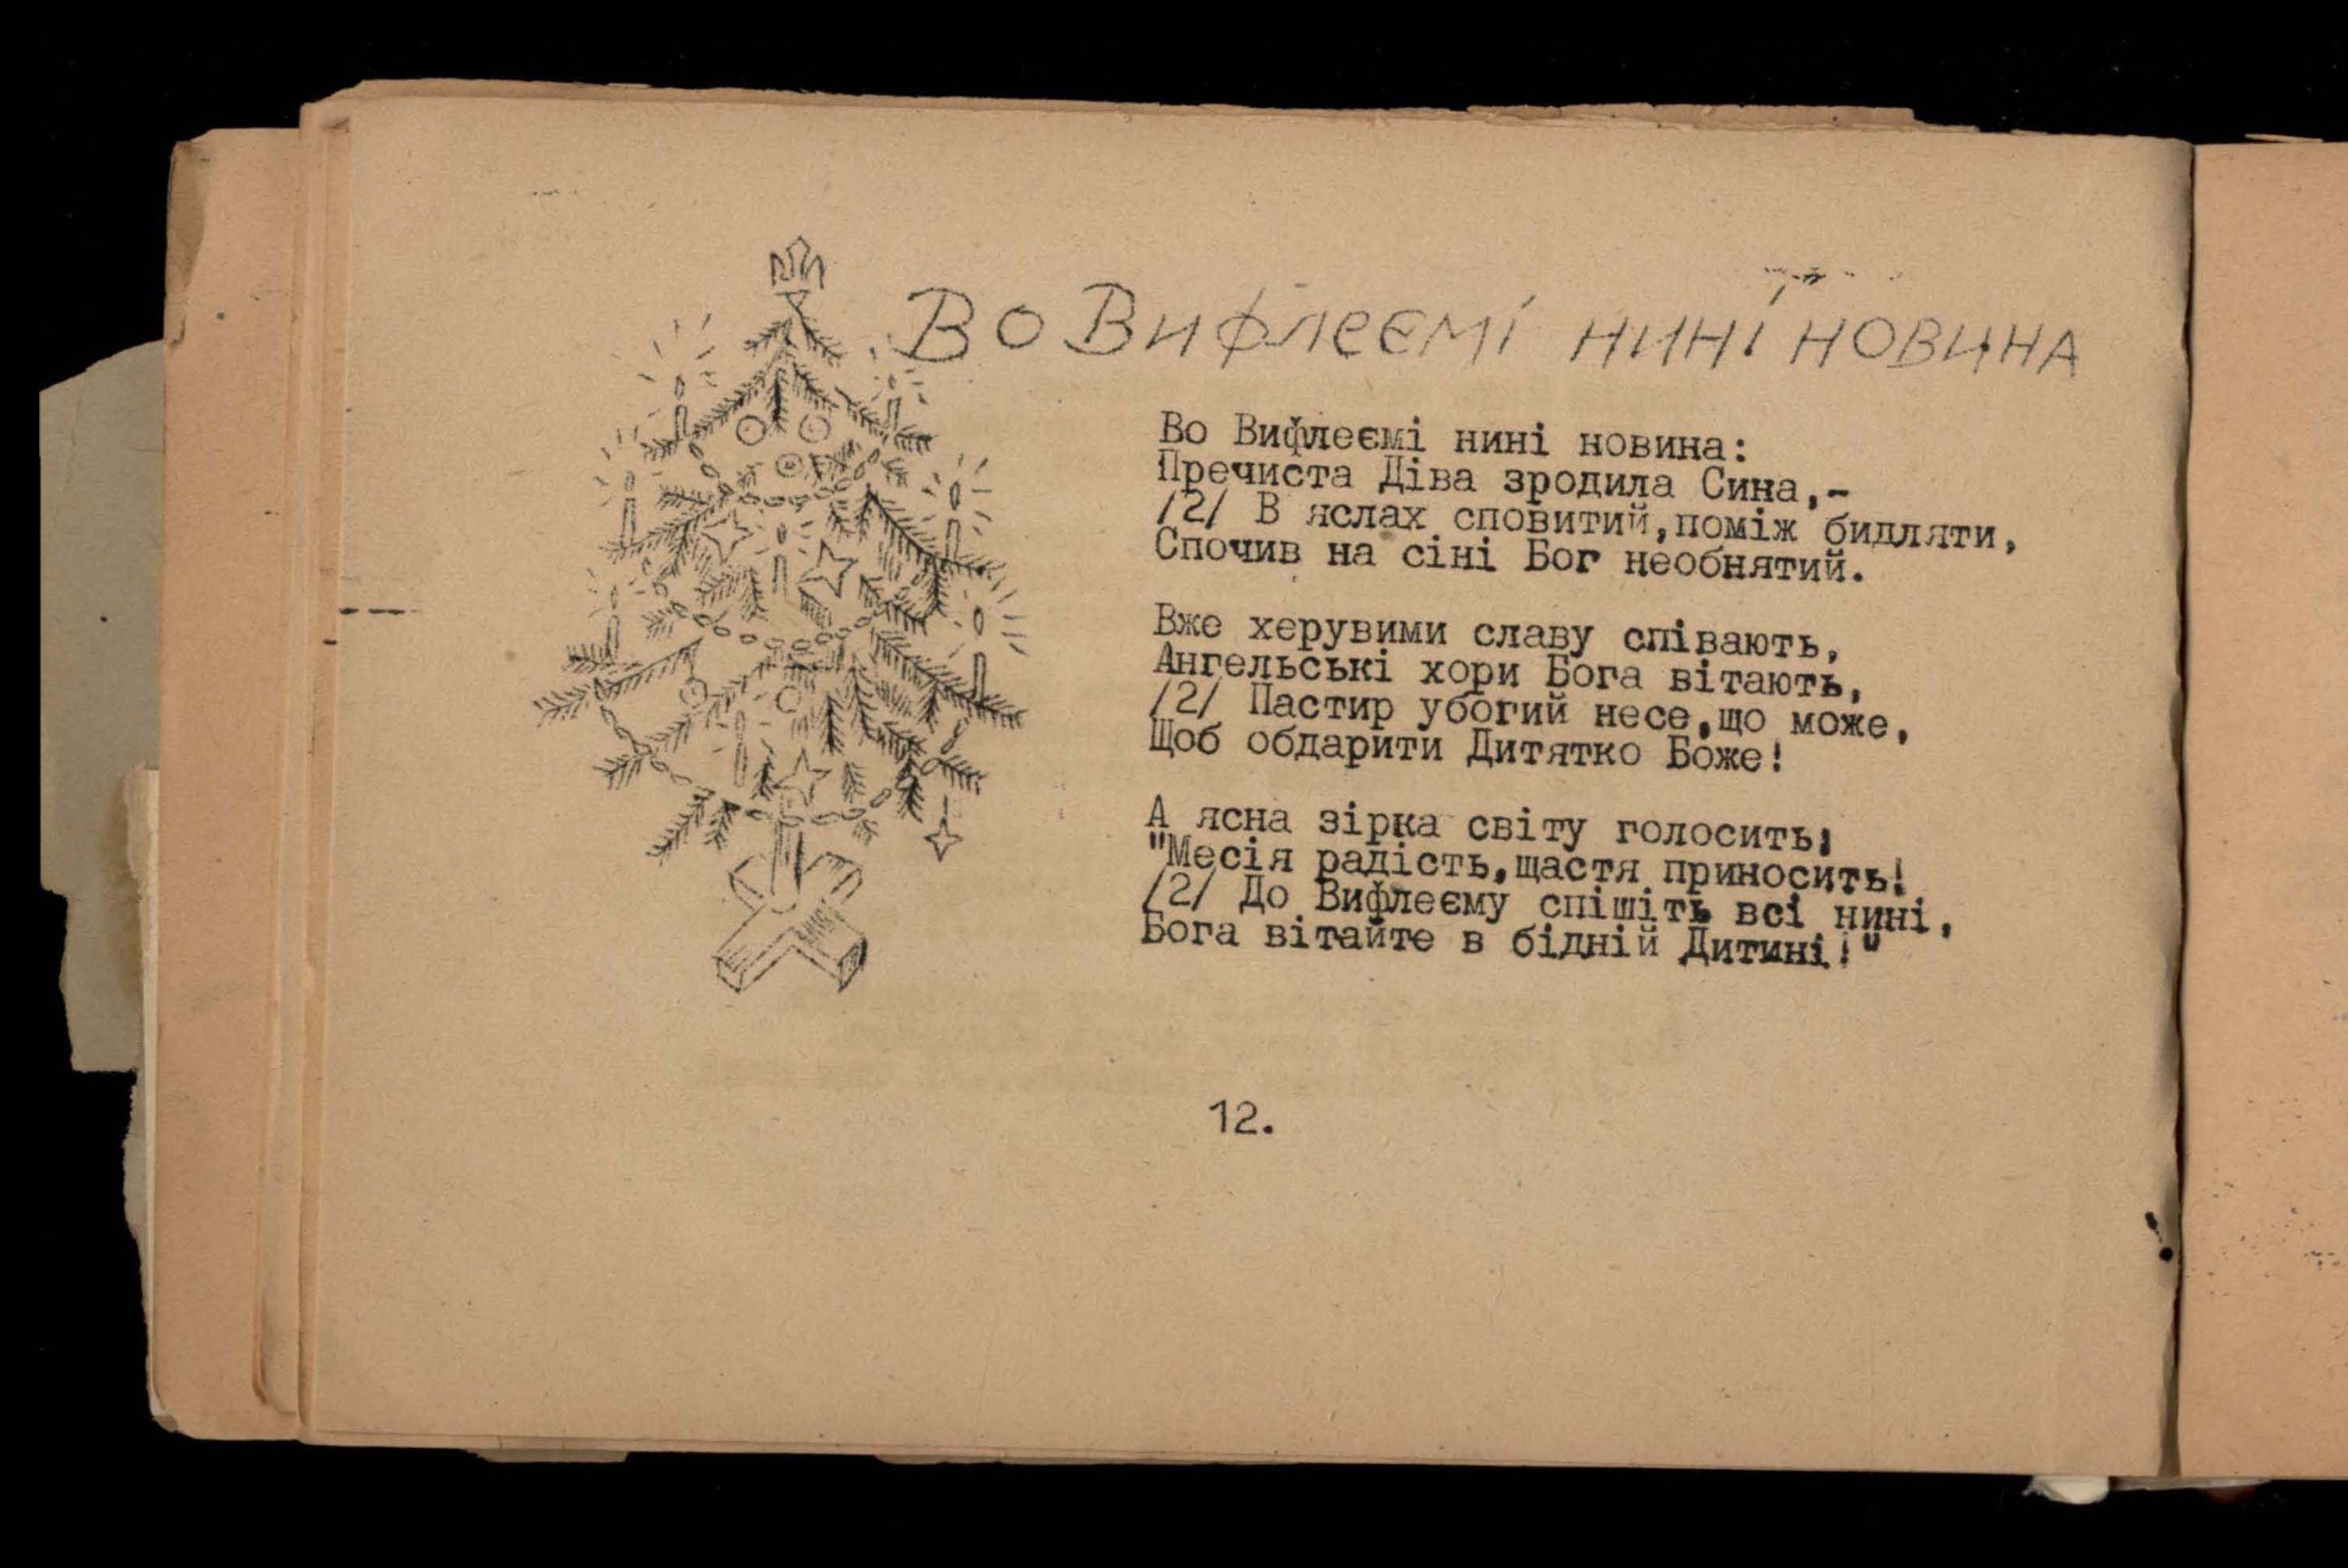 Во Вифлеємі нині новина
Во Вифлеємі нині новина:
Пречиста Діва зродила Сина,-
/2/ В яслах сповитий,поміж бидляти,
Спочив на сіні Бог необнятий.
Вже херувими славу співають,
Ангельські хори Бога вітають,
/2/ Пастир убогий несе,що може,
Щоб обдарити Дитятко Боже!
А ясна зірка світу голосить;
"Месія радість,щастя приносить!
/2/ До Вифлеєму спішіть всі нині,
Бога вітайте в бідній Дитині!"
12.